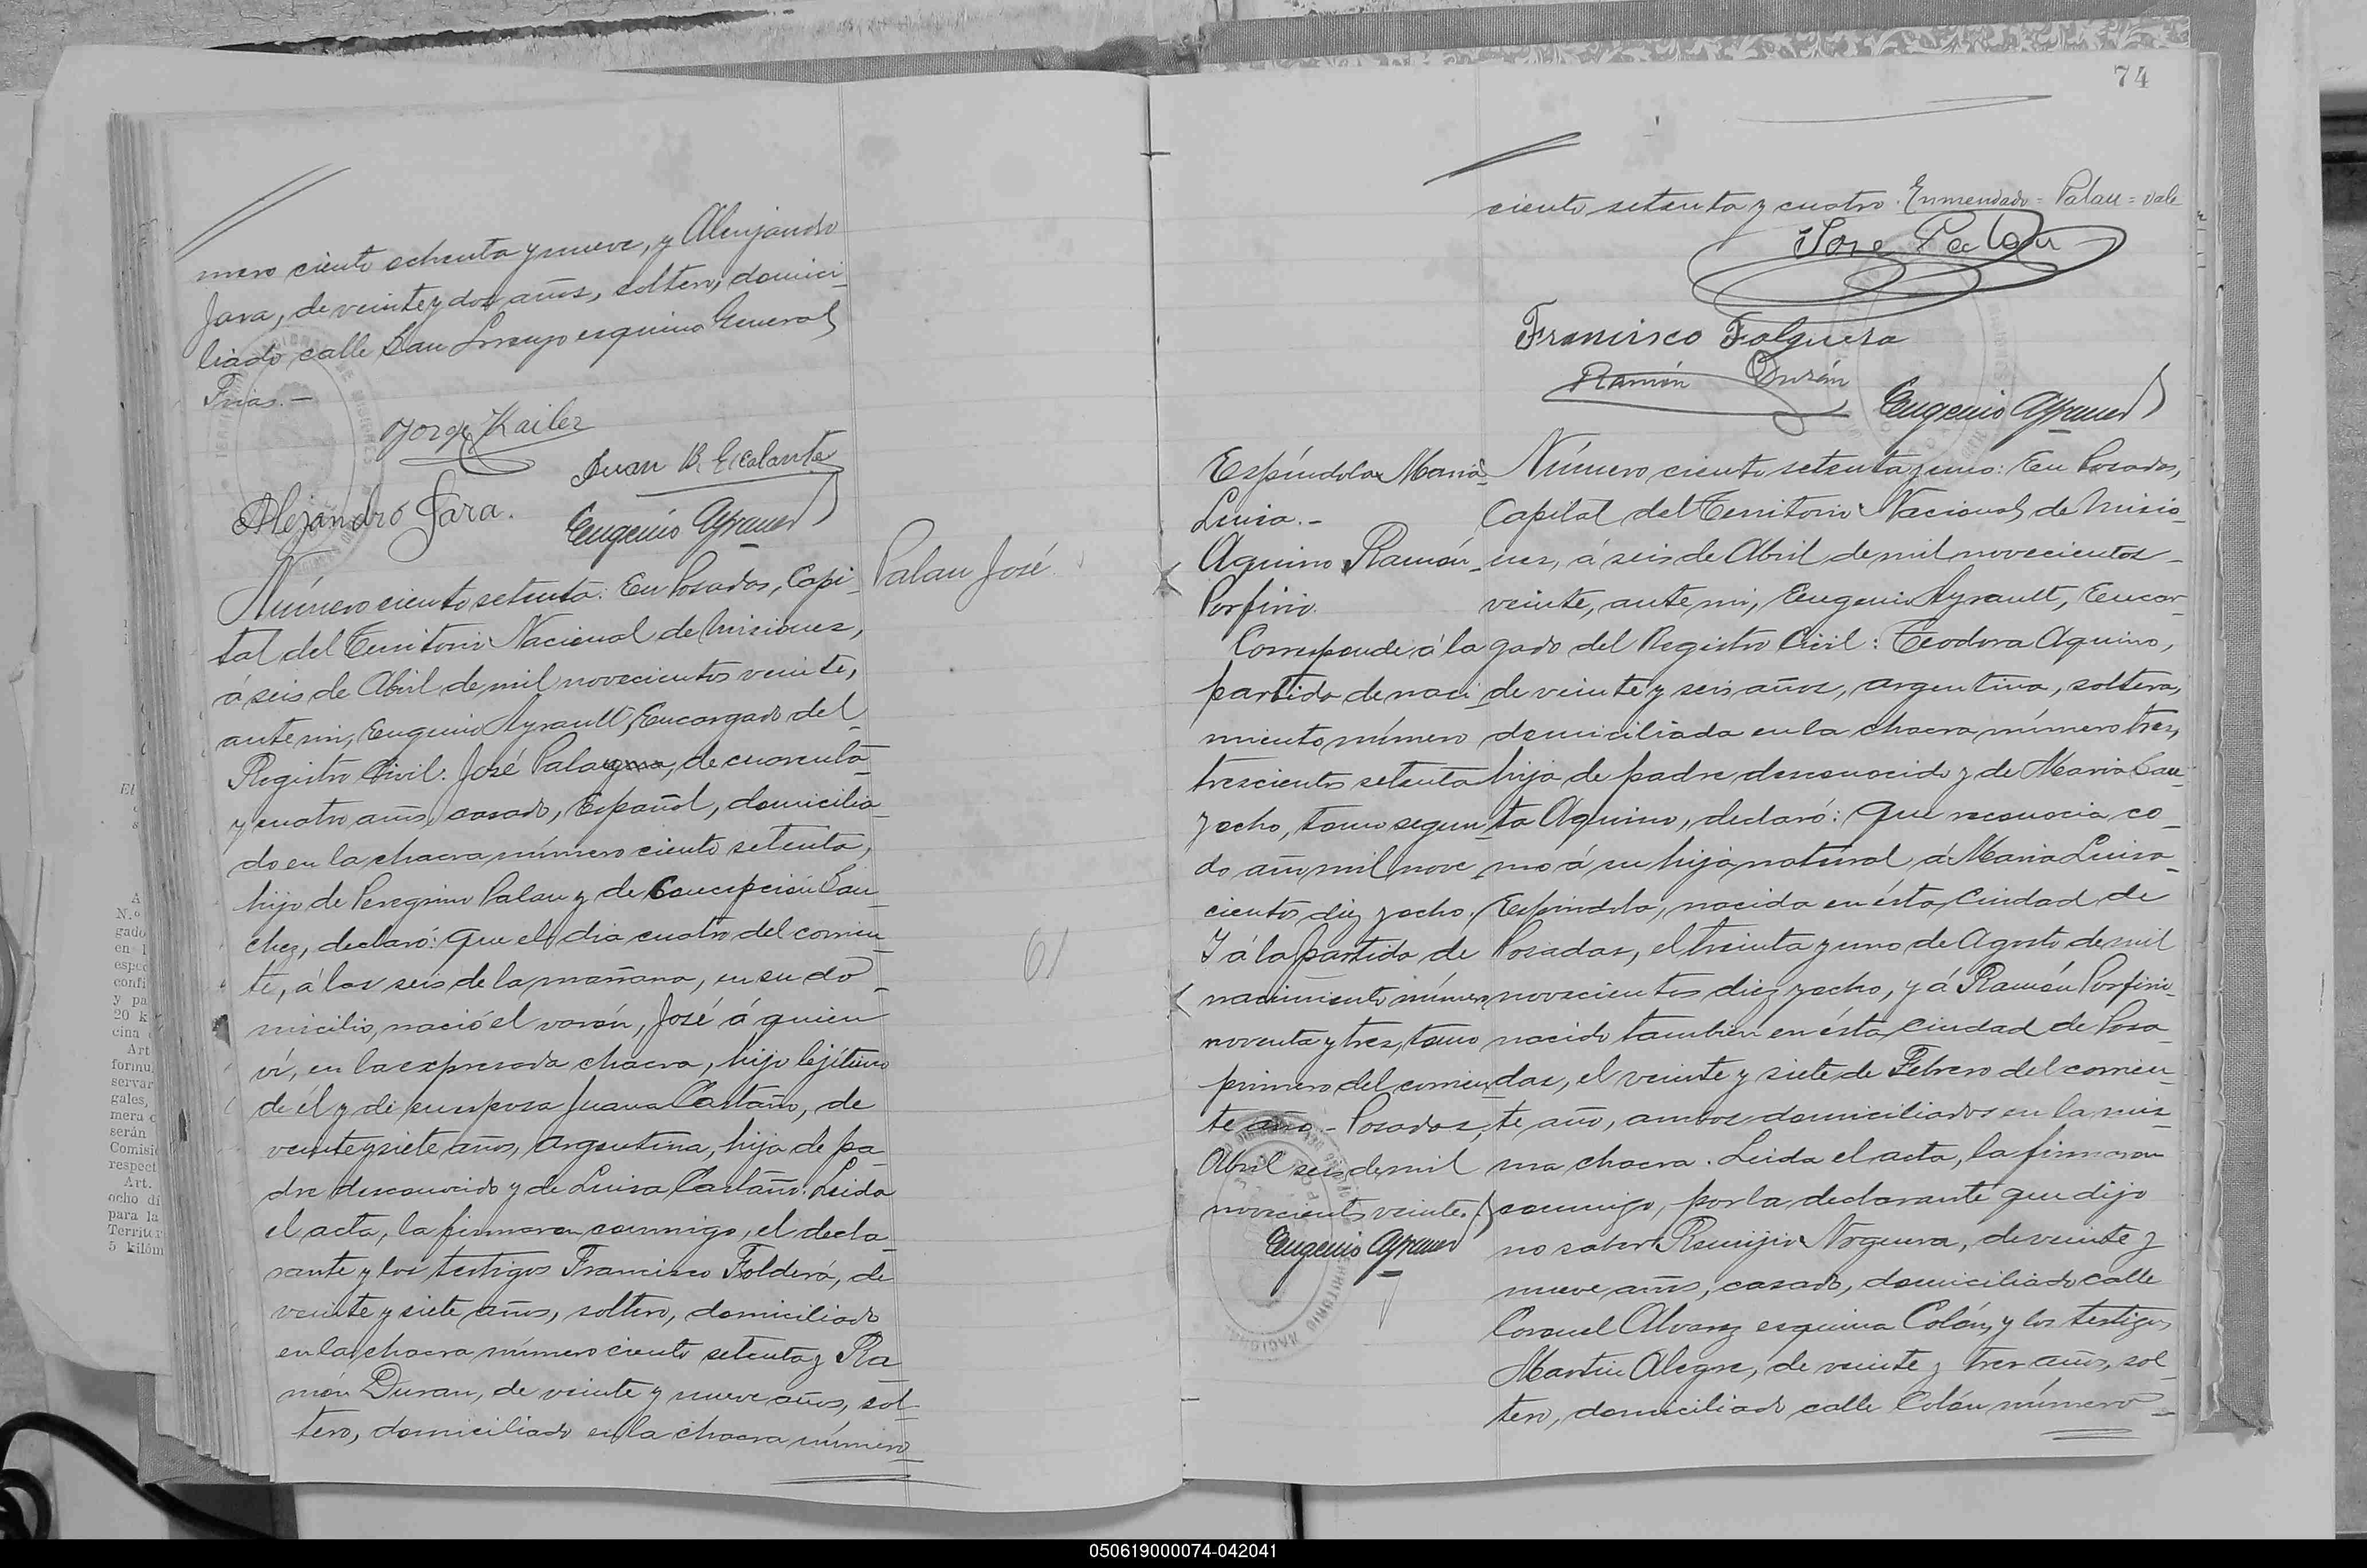 mero ciento ochenta y nueve, y Alenjandro
Jara, de veinte y dos años, soltero, domici-
liado calle San Lorenzo esquina General
Frias.-
Jorge Kailer
Juan B. Escalante
Alejandro Jara.
Eugenio Ayrault
Palau José
Número ciento setenta: En Posadas, Capi-
tal del Territorio Nacional de Misiones,
á seis de Abril de mil novecientos veinte,
ante mi, Eugenio Ayrault, Encargado del
Registro Civil: José Palau, de cuarenta
y cuatro años, casado, Español, domicilia-
do en la chacra número ciento setenta,
hijo de Peregrino Palau y de Concepción San-
chez, declaró: Que el dia cuatro del corrien-
te, á las seis de la mañana, en su do-
micilio, nació el varón, José á quien
ví, en la expresada chacra, hijo lejítimo
de él y de su esposa Juana Castaño, de
veinte y siete años, argentina, hija de pa-
dre desconocido y de Luisa Castaño. Leida
el acta, la firmaron conmigo, el decla-
rante y los testigos Francisco Folderá, de
veinte y siete años, soltero, domiciliado
en la chacra número ciento setenta y Ra-
món Duran, de veinte y nueve años, sol-
tero, domiciliado en la chacra número
61
74
ciento setenta y cuatro. Enmendado = Palau = vale
José Palau
Francisco Folguera
Ramón Durán
Eugenio Ayrault
Espíndola Maria
Luisa.-
Aquino Ramón
Porfirio.
Corresponde á la
partida de naci-
miento número
trescientos setenta
y ocho, tomo segun-
do año mil nove-
cientos diez y ocho.
Y á la partida de
nacimiento número
noventa y tres, tomo
primero del corrien-
te año - Posadas,
Abril seis de mil
novecientos veinte.
Eugenio Ayrault
Número ciento setenta y uno: En Posadas,
Capital del Territorio Nacional de Misio-
nes, á seis de Abril de mil novecientos
veinte, ante mi, Eugenio Ayrault, Encar-
gado del Registro Civil: Teodora Aquino,
de veinte y seis años, argentina, soltera,
domiciliada en la chacra número tres,
hija de padre desconocido y de Maria San-
ta Aquino, declaró: Que reconocia co-
mo á su hija natural á Maria Luisa
Espindola, nacida en ésta Ciudad de
Posadas, el treinta y uno de Agosto de mil
novecientos diez y ocho, y á Ramón Porfirio
nacido tambien en ésta Ciudad de Posa-
das, el veinte y siete de Febrero del corrien-
te año, ambos domiciliados en la mis-
ma chacra. Leida el acta, la firmaron
conmigo, por la declarante que dijo
no saber Remijio Noguera, de veinte y
nueve años, casado, domiciliado calle
Coronel Alvarez esquina Colón, y los testigos
Martin Alegre, de veinte y tres años, sol-
tero, domiciliado calle Colón número
050619000074-042041